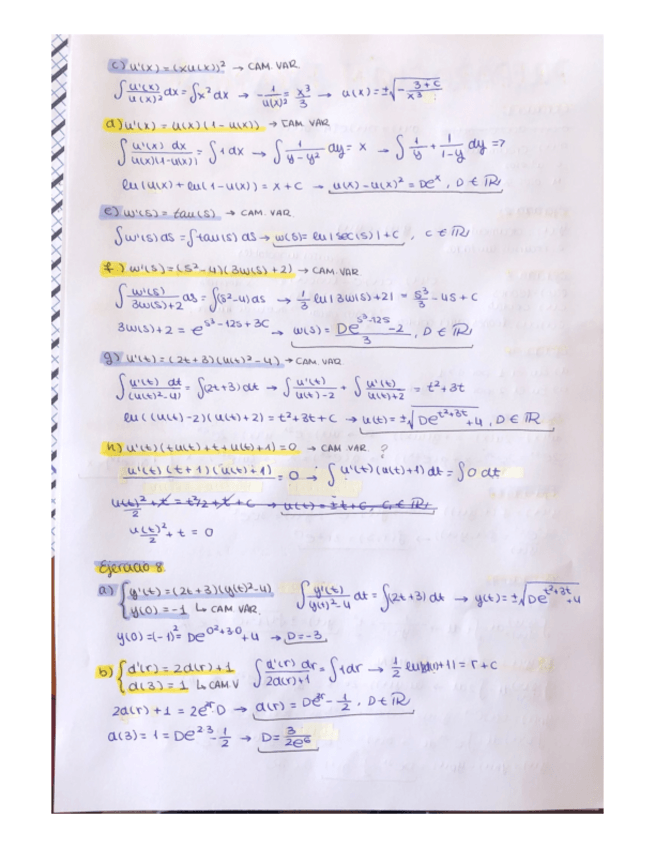 c) u'(x) = (xu(x))² → CAM. VAR.
∫ u'(x)/u(x)² dx = ∫x² dx → -1/u(x)² = x³/3 → u(x) = ±√(-(3+C)/x³)
d) u'(x) = u(x)(1-u(x)) → CAM. VAR.
∫ u'(x) dx/(u(x)(1-u(x))) = ∫1dx → ∫ 1/(y-y²) dy = x → ∫ 1/y + 1/(1-y) dy =?
ln(u(x) + ln(1-u(x)) = x + C → u(x) - u(x)² = De^x, D ∈ ℝ
e) w'(s) = tan(s) → CAM. VAR.
∫w'(s) ds = ∫tan(s) ds → w(s) = ln|sec(s)| + C, C ∈ ℝ
f) w'(s) = (s²-4)(3w(s)+2) → CAM. VAR.
∫ w'(s)/(3w(s)+2) ds = ∫(s²-4) ds → 1/3 ln|3w(s)+2| = s³/3 - 4s + C
3w(s)+2 = e^(s³-12s+3C) → w(s) = (De^(s³-12s) - 2)/3, D ∈ ℝ
g) u'(t) = (2t+3)(u(t)²-4) → CAM. VAR.
∫ u'(t) dt/(u(t)²-4) = ∫(2t+3) dt → ∫ u'(t)/(u(t)-2) + ∫ u'(t)/(u(t)+2) = t²+3t
ln((u(t)-2)(u(t)+2) = t²+3t+C → u(t) = ±√(De^(t²+3t)+4), D ∈ ℝ
h) u'(t)(tu(t)+t+u(t)+1) = 0 → CAM. VAR. ?
u'(t)(t+1)(u(t)+1) = 0 → ∫u'(t)(u(t)+1) dt = ∫0 dt
u(t)²/2 + t = 0
Ejercicio 8
a) { y'(t) = (2t+3)(y(t)²-4) ∫ y'(t)/(y(t)²-4) dt = ∫(2t+3) dt → y(t) = ±√(De^(t²+3t)+4)
y(0) = -1 ↳ CAM VAR.
y(0) = (-1)² = De^(0²+3·0)+4 → D = -3
b) { d'(r) = 2d(r)+1 ∫ d'(r) dr/(2d(r)+1) = ∫1dr → 1/2 +1| = r + C
d(3) = 1 ↳ CAM V
2d(r)+1 = 2e^(2r)D → d(r) = De^(2r) - 1/2, D ∈ ℝ
d(3) = 1 = De^(2·3) - 1/2 → D = 3/(2e⁶)